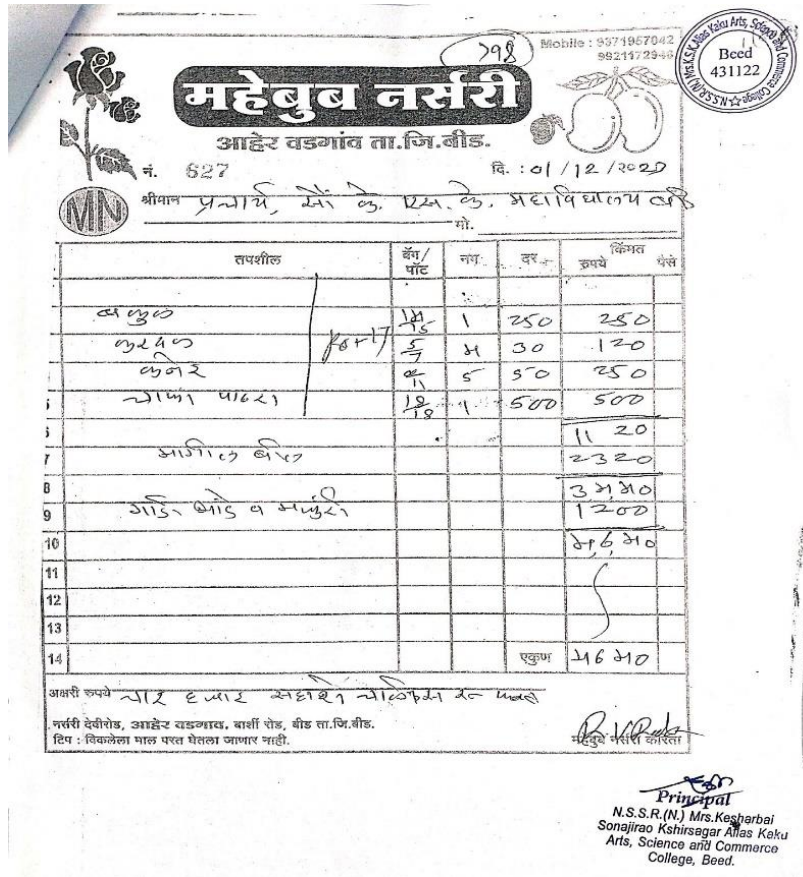 798
Mobile : 9371957042
9921172946
Mrs.K.S.K.Alias Kaku Arts, Science and Commerce College
Beed
431122
महेबुब नर्सरी
आहेर वडगांव ता.जि.बीड.
नं. 627
दि. : 01/12/2020
MN
श्रीमान प्राचार्य, सौ. के. एस. के. महाविद्यालय बीड
मो.
तपशील बॅग/पॉट नग दर किंमत रुपये पैसे
बकुळ 1 250 250
5/7 4 30 120
कनेर 5 50 250
5 चाफा पांढरा 18/18 1 500 500
6 1120
7 मागील बील 2320
8 3440
9 गाडी भाडे व मजुरी 1200
10 4,640
11
12
13
14 एकुण 4640
अक्षरी रुपये चार हजार सहाशे चाळीस रू
नर्सरी देवीरोड, आहेर वडगाव, बार्शी रोड, बीड ता.जि.बीड.
टिप : विकलेला माल परत घेतला जाणार नाही.
महेबुब नर्सरी करिता
Principal
N.S.S.R.(N.) Mrs.Kesharbai
Sonajirao Kshirsagar Alias Kaku
Arts, Science and Commerce
College, Beed.